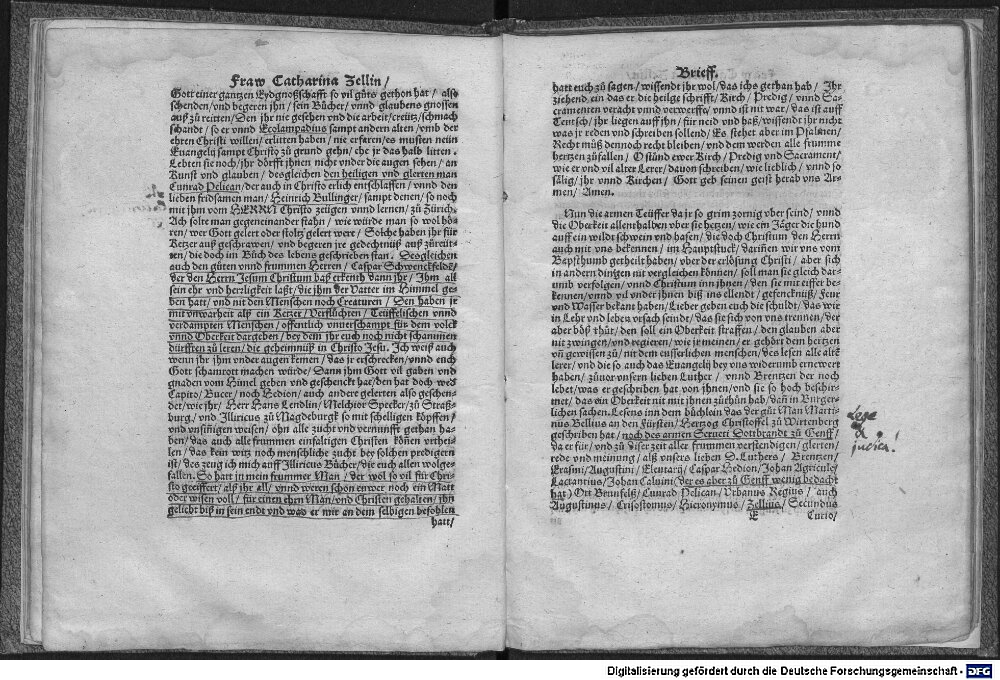 Fraw Catharina Zellin/
Gott einer gantzen Eydgnoßschafft so vil gůts gethon hat/ also
schenden/ vnd begeren jhn/ sein Bücher/ vnnd glaubens gnossen
auß zů reitten/ Den jhr nie gesehen vnd die arbeit/ creütz/ schmach
schandt/ so er vnnd Ecolampadius sampt andern alten/ vmb der
ehren Christi willen/ erlitten haben/ nie erfaren/ es musten nein
Euangelj sampt Christo zů grund gehn/ ehe jr das halb litten.
Lebten sie noch/ jhr dörfft jhnen nicht vnder die augen sehen/ an
Kunst vnd glauben/ desgleichen den heiligen vnd glerten man
Cunrad Pelican/ der auch in Christo erlich entschlaffen/ vnnd den
lieben fridsamen man/ Heinrich Bullinger/ sampt denen/ so noch
mit jhm vom HERRN Christo zeügen vnnd lernen/ zů Zürich.
Ach solte man gegeneinander stahn/ wie würde man so wol hö-
ren/ wer Gott gelert oder stoltz gelert were/ Solche haben jhr für
Ketzer auß geschrawen/ vnd begeren jre gedechtnüß auß züreüt-
ten/ die doch im Bůch des lebens geschrieben stan. Desgleichen
auch den gůten vnnd frummen Herren/ Caspar Schwenckfeldt/
der den Herrn Jesum Christum baß erkenth dann jhr/ Jhm all
sein ehr vnd herzligkeit laßt/ die jhm der Vatter im Himmel ge-
ben hatt/ vnd nit den Menschen noch Creaturen/ Den haben je
mit vnwarheit alß ein Ketzer/ Verflůchten/ Teüffelischen vnnd
verdampten Menschen/ offentlich vnuerschampt für dem volck
vnnd Oberkeit dargeben/ bey dem jhr euch nicht schammen
dürfften zů leren/ die geheimnüß in Christo Jesu. Ich weiß auch
wenn jhr jhm vnder augen kemen/ das jr erschrecken/ vnnd euch
Gott schamrott machen würde/ Dann jhm Gott vil gaben vnd
gnaden vom Himel geben vnd geschenckt hat/ den hat doch wed
Capito/ Bucer/ noch Hedion/ auch ander gelerten also geschen-
det/ wie jhr/ Herr Hans Lendlin/ Melchior Specker/ zů Straß-
burg/ vnd Illiricus zů Magdeburgk/ so mit schelligen köpffen/
vnd vnsinigen weisen/ ohn alle zucht vnd vernunfft gethan ha-
ben/ das auch alle frummen einfaltigen Christen könen vrthei-
len/ das kein witz noch menschliche zucht bey solchen predigern
ist/ des zeug ich mich auff Illiricus Bücher/ die euch allen wolge-
fallen. So hatt in mein frummer Man/ der wol so vil für Chri-
sto geeiffert/ alß jhr all/ vnnd weren schon ewer noch ein Matt
oder wisen voll/ für einen ehrn Man/ vnd Christen gehalten/ jhn
gelicht biß in sein endt vnd was er mir an dem selbigen befohlen
hatt/
Brieff.
hatt euch zů sagen/ wissendt jhr wol/ das ichs gethan hab/ Jhr
ziehend ein das er die heilge schrifft/ Kirch/ Predig/ vnnd Sa-
cramenten veracht vnnd verwerffe/ vnnd ist nit war/ das ist auff
Teutsch/ jhr liegen auff jhn/ für neid vnd haß/ wissendt jhr nicht
was jr reden vnd schreiben sollend/ Es stehet aber im Psalmen/
Recht můß dennoch recht bleiben/ vnd dem werden alle frumme
hertzen zůfallen/ O sünd ewer Kirch/ Predig vnd Sacrament/
wie er vnd vil alter Lerer/ dauon schreiben/ wie lieblich/ vnnd so
sälig/ jhr vnnd Kirchen/ Gott geb seinen geist herab vns Ar-
men/ Amen.
Nun die armen Teüffer da jr so grim zornig vber seind/ vnnd
die Oberkeit allenthalben vber sie hetzen/ wie ein Jäger die hund
auff ein wildt schwein vnd hasen/ die doch Christum den Herrn
auch mit vns bekennen/ im Hauptstuck/ darinen wir vns vom
Bapsthumb getheilt haben/ vber der erlösung Christi/ aber sich
in andern dingen nit vergleichen können/ soll man sie gleich dar-
umb verfolgen/ vnnd Christum inn jhnen/ den sie mit eiffer be-
kennen/ vnnd vil vnder jhnen biß ins ellendt/ gefencknüß/ Feur
vnd Wasser bekant haben/ Lieber geben euch die schuldt/ das wir
in Lehr vnd leben vrsach seindt/ das sie sich von vns trennen/ der
aber böß thůt/ den soll ein Oberkeit straffen/ den glauben aber
nit zwingen/ vnd regieren/ wie jr meinen/ er gehört dem hertzen
vn̄ gewissen zů/ nit dem eusserlichen menschen/ des lesen alle alte
lerer/ vnd die so auch das Euangelij bey vns widerumb ernewert
haben/ zůuor vnsern lieben Luther/ vnnd Brentzen der noch
lebet/ was er geschriben hat von jhnen/ vnd sie so hoch beschir-
met/ das ein Oberkeit nit mit jhnen zůthůn hab/ dañ in Burger-
lichen sachen. Lesens inn dem büchlein das der gůt Man Marti-
nus Bellius an den Fürsten/ Hertzog Christoffel zů Wirtenberg
geschriben hat/ noch des armen Serueti Dotsbrandt zů Genff/
da er für/ vnd zů diser zeit aller frummen verstendigen/ glerten
rede vnd meinung/ alß vnsers lieben D. Luthers/ Brentzen/
Erasmi/ Augustini/ Eleutarij/ Caspar Hedion/ Johan Agricule/
Lactantius/ Johan Caluini/ der es aber zů Genff wenig bedacht
hat) Ott Brunfelß/ Cunrad Pelican/ Vrbanus Regius/ auch
Augustinus/ Crisostomus/ Hieronymus/ Zellius/ Secundus
E Curio/
Lese
&
judica!
Digitalisierung gefördert durch die Deutsche Forschungsgemeinschaft - DFG